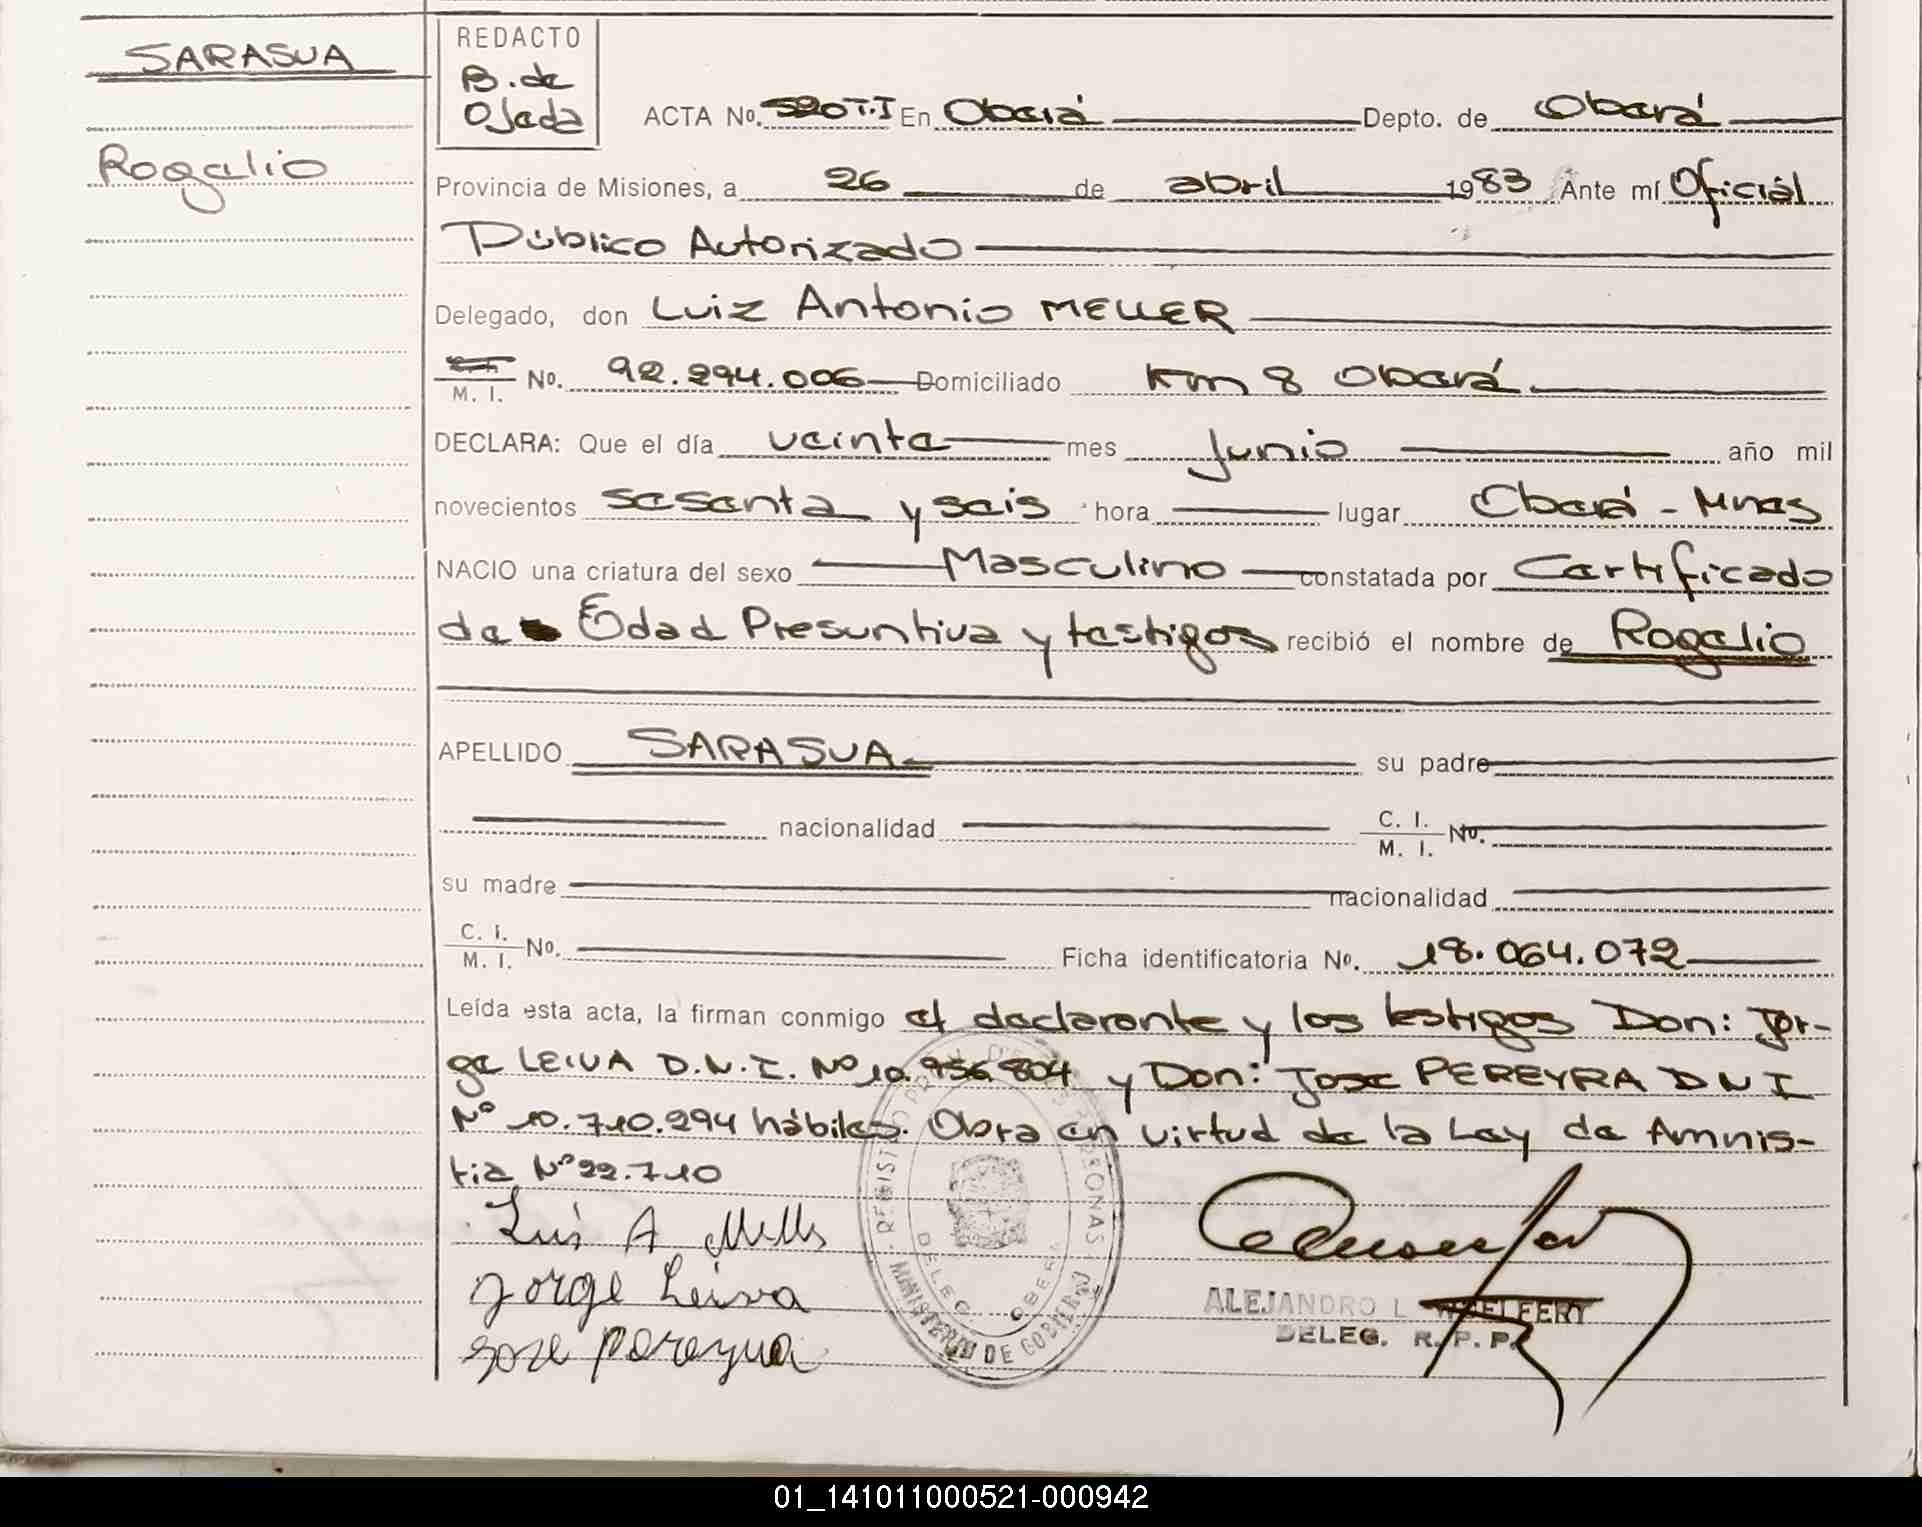 SARASUA
Rogelio
REDACTO
B. de
Ojeda
ACTA No. 520 T.I En Oberá Depto. de Oberá
Provincia de Misiones, a 26 de abril 1983 Ante mí Oficial
Público Autorizado
Delegado, don Luiz Antonio MELLER
M. I. No. 92.294.006 Domiciliado Km 8 Oberá
DECLARA: Que el día veinte mes Junio año mil
novecientos sesenta y seis hora lugar Oberá - Mnes
NACIO una criatura del sexo Masculino constatada por Certificado
de Edad Presuntiva y testigos recibió el nombre de Rogelio
APELLIDO SARASUA su padre
nacionalidad C. I. M. I. No.
su madre nacionalidad
C. I. M. I. No. Ficha identificatoria No. 18.064.072
Leída esta acta, la firman conmigo el declarante y los testigos Don: Jor-
ge LEIVA D.N.I. Nº 10.956.804 y Don: Jose PEREYRA D N I
Nº 10.710.294 hábiles. Obra en virtud de la Ley de Amnis-
tia Nº 22.710
Luis A Meller
Jorge Leiva
Jose Pereyra
REGISTRO DE PERSONAS
DELEG. OBERA
MINISTERIO DE GOBIERNO
ALEJANDRO L WOELFERT
DELEG. R. P. P.
01_141011000521-000942